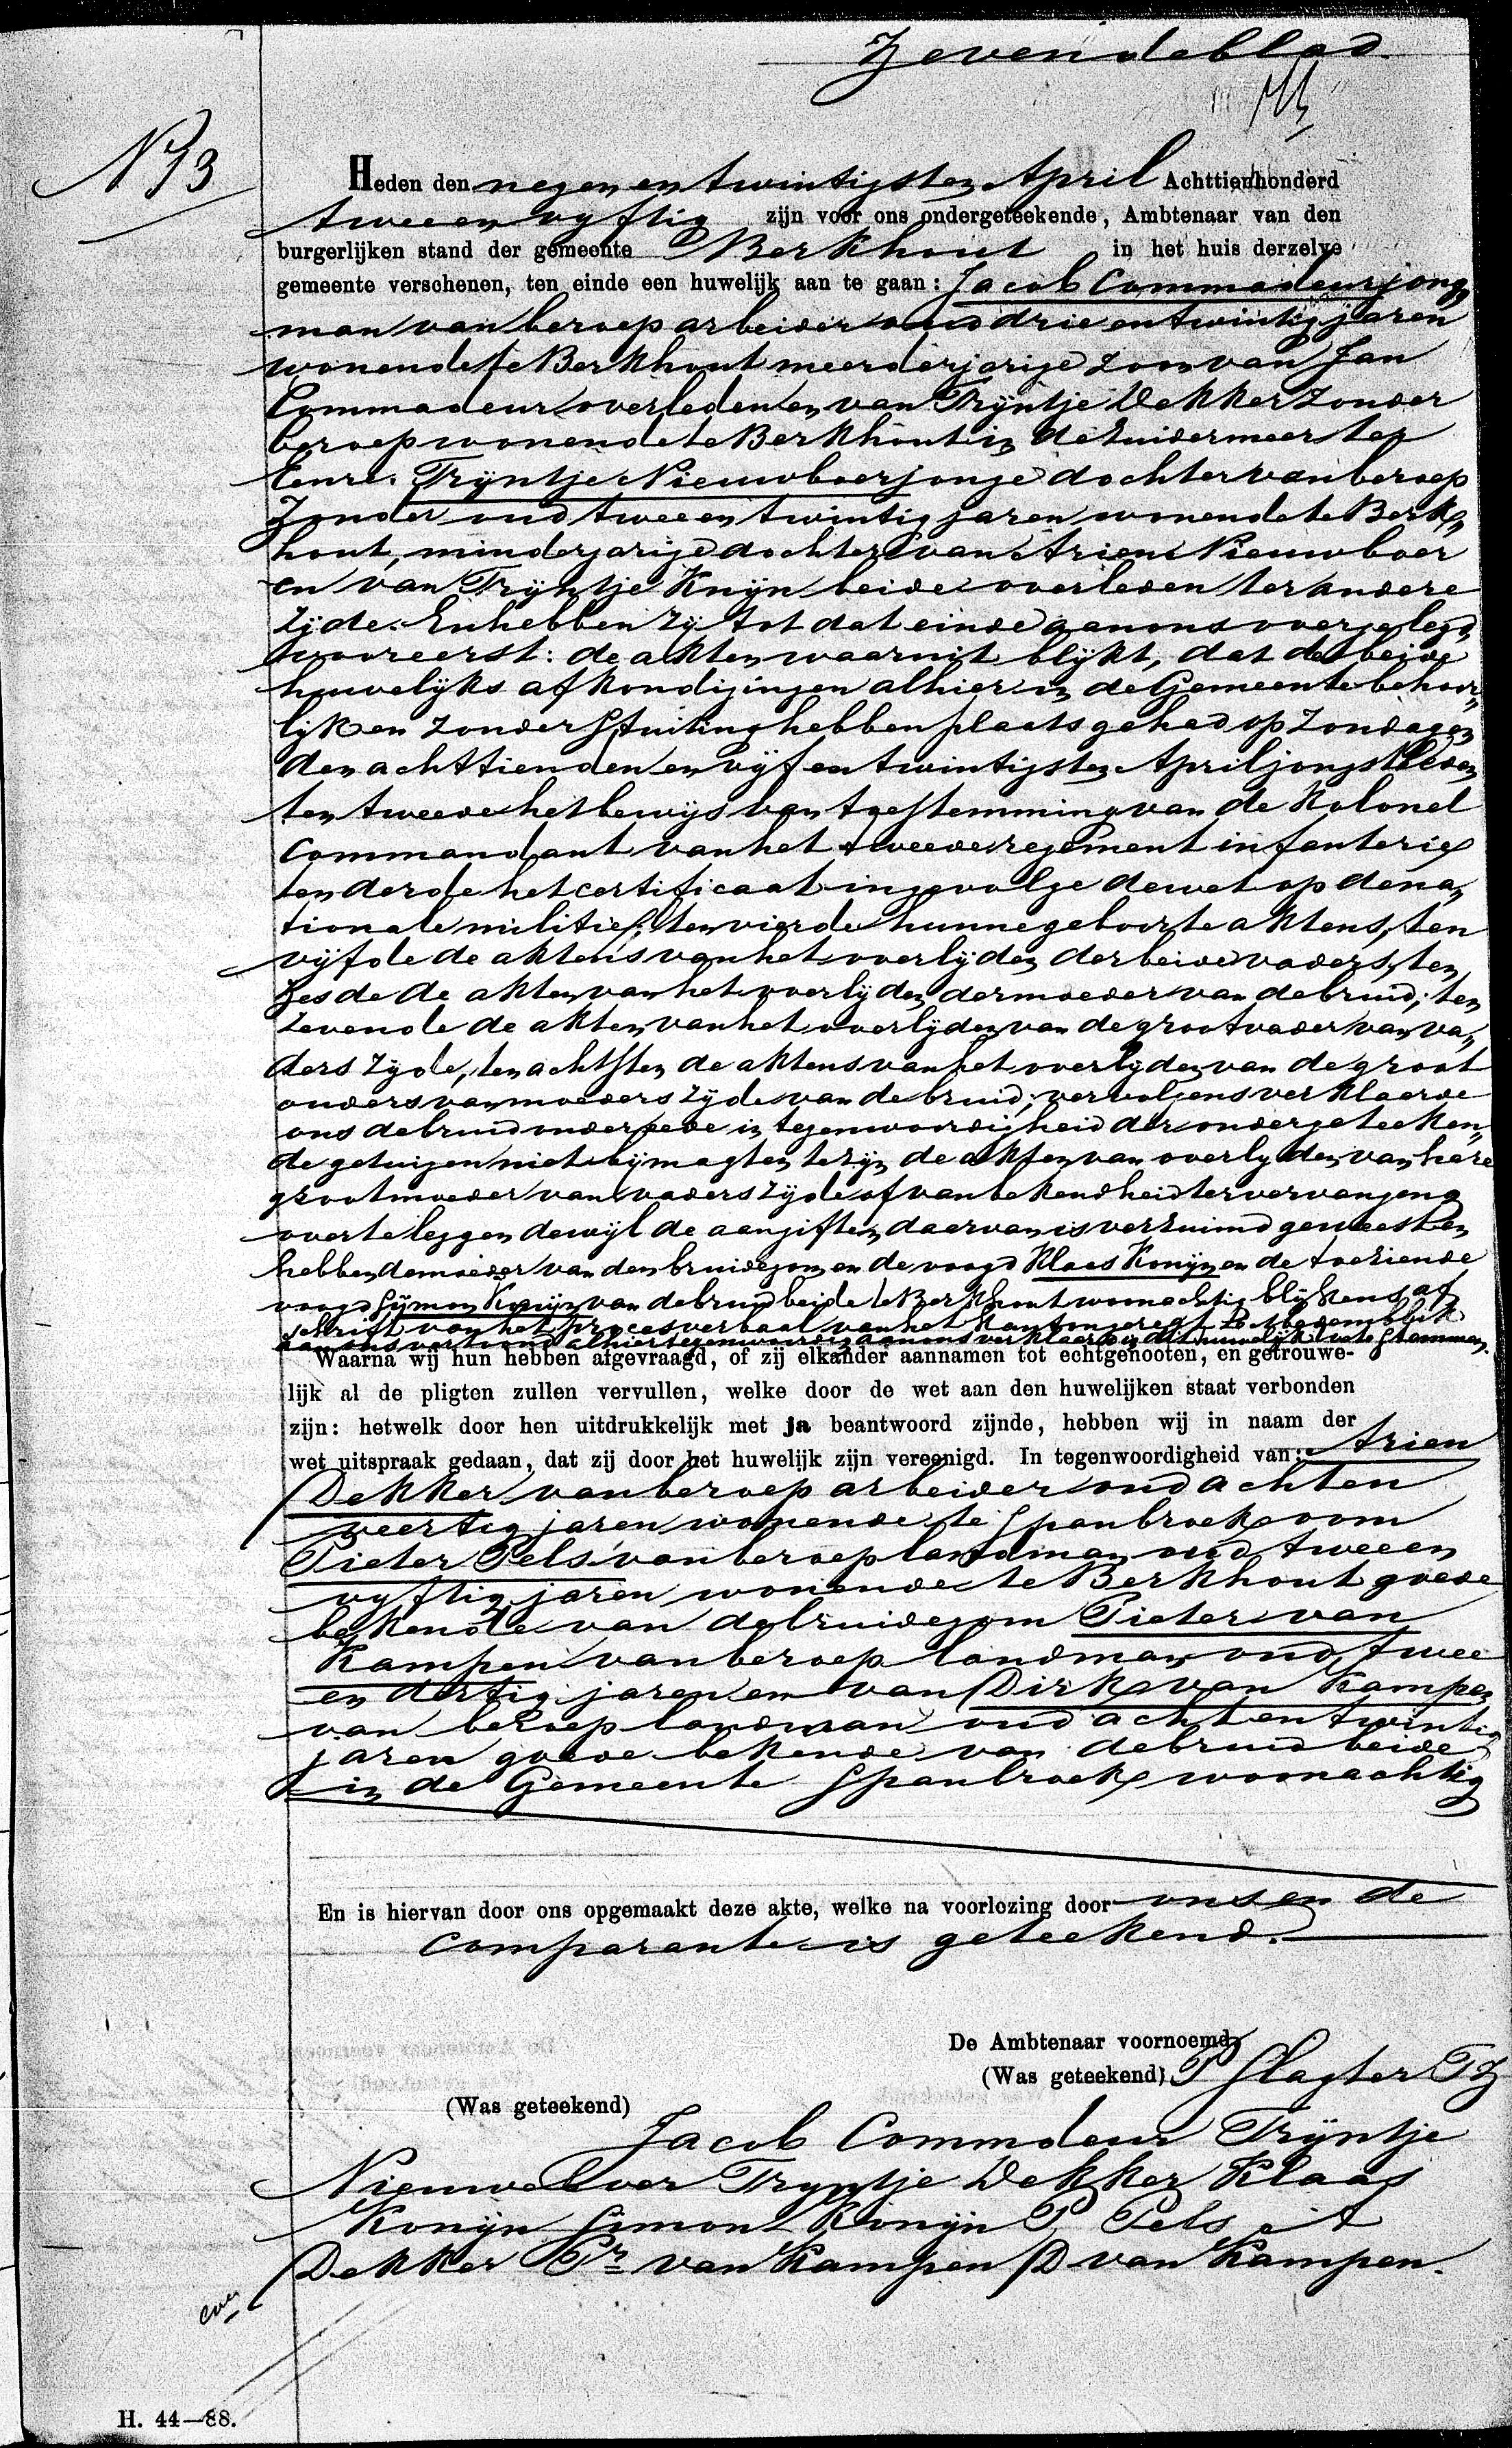 Zevendeblad.
N 13
Heden den negen en twintigsten April Achttienhonderd
twee en vyftig zijn voor ons ondergeteekende, Ambtenaar van den
burgerlijken stand der gemeente Berkhout in het huis derzelve
gemeente verschenen, ten einde een huwelijk aan te gaan: Jacob Commadeur jong,
man van beroep arbeider oud drie en twintig jaren
wonende te Berkhout meerderjarige zoon van Jan
Commadeur overleden en van Trijntje Dekker zonder
beroep wonende te Berkhout in de Zuidermeer ter
Eenre. Trijntje Nieuwboer jonge dochter van beroep
Zonder oud twee en twintig jaren wonende te Berk,
hout, minderjarige dochter van Arien Nieuwboer
en van Trijntje Knijn beide overleden ter andere
Zijde. En hebben zij tot dat einde aan ons overgelegd
vooreerst: de akten waaruit blijkt, dat de beide
huwelijks afkondigingen alhier in de Gemeente behoor,
lijk en zonder Stuiting hebben plaats gehad op Zondagen
den achttienden en vijf en twintigsten April jongstleden
ten tweede het bewijs van toestemming van de Kolonel
Commandant van het tweede regement infanterie
ten derde het certificaat ingevolge de wet op de na,
tionale militie; ten vierde hunne geboorte aktens, ten
vijfde de aktens van het overlijden der beide vaders, ten
zesde de akten van het overlijden der moeder van de bruid; ten
zevende de akten van het overlijden van de grootvader van va,
ders zijde, ten achtsten de aktens van het overlijden van de groot
ouders van moeders zijde van de bruid; vervolgens verklaarde
ons de bruid onder eede in tegenwoordigheid der ondergeteeken,
de getuigen niet bij magten te zijn de akten van overlyden van hare
grootmoeder van vaders zijde of van bekendheid ter vervanging
over te leggen dewijl de aangiften daervan is verzuimd geweest en
hebben de moeder van den bruidegom en de voogd Klaas Konijn en de toeziende
voogd Sijmon Konijn van de bruid beide te Berkhout woonachtig blijkens af,
schrift van het procesverbaal van het Kantongeregt zo op het oogenblik
aan ons vertoond alhier tegenwoordig aan ons verklaard in dit huwelijk toe te stemmen.
Waarna wij hun hebben afgevraagd, of zij elkander aannamen tot echtgenooten, en getrouwe-
lijk al de pligten zullen vervullen, welke door de wet aan den huwelijken staat verbonden
zijn: hetwelk door hen uitdrukkelijk met ja beantwoord zijnde, hebben wij in naam der
wet uitspraak gedaan, dat zij door het huwelijk zijn vereenigd. In tegenwoordigheid van: Arien
Dekker van beroep arbeider oud acht en
veertig jaren wonende te Spanbroek oom
Pieter Pels van beroep landman oud twee en
vyftig jaren wonende te Berkhout goede
bekende van de bruidegom Pieter van
Kampen van beroep landman oud twee
en dertig jaren en van Dirk van Kampen
van beroep landman oud acht en twintig
jaren goede bekende van de bruid beide
in de Gemeente Spanbroek woonachtig
En is hiervan door ons opgemaakt deze akte, welke na voorlezing door ons en de
comparante is geteekend.
De Ambtenaar voornoemd,
(Was geteekend) P Slagter Tz
(Was geteekend)
Jacob Commdeur Trijntje
Nieuweboer Tryntje Dekker Klaas
Konijn Simon Konijn P Pels A
Dekker Pr van Kampen D van Kampen.
H. 44—88.